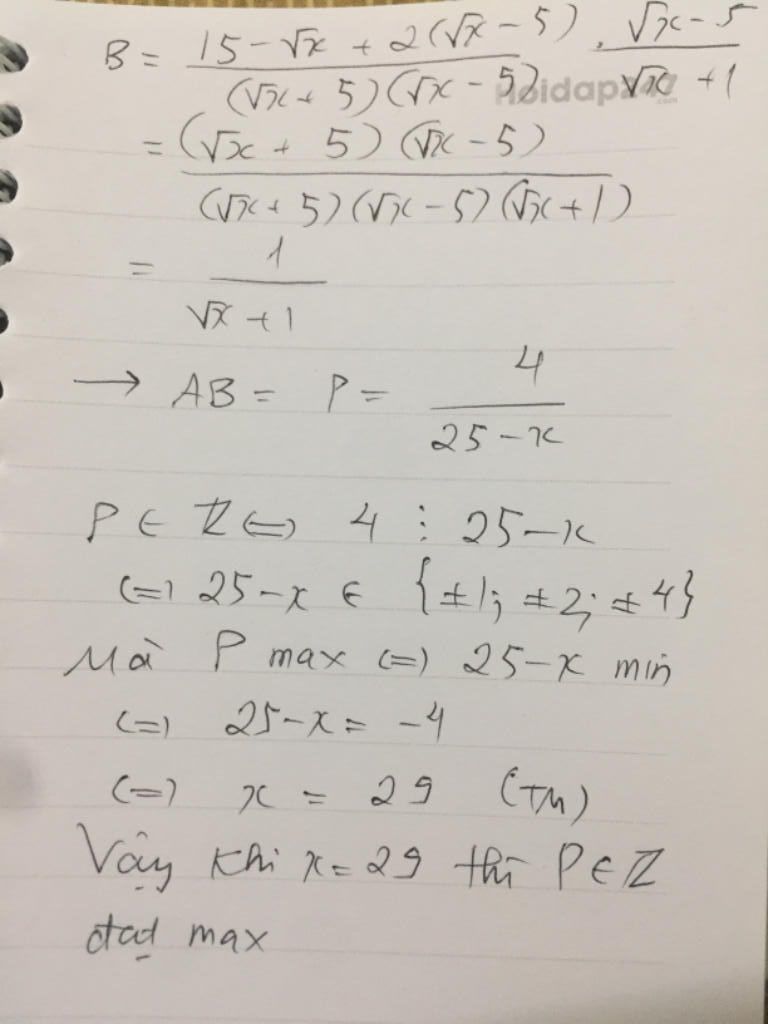 B = \frac{15 - \sqrt{x} + 2(\sqrt{x} - 5)}{(\sqrt{x} + 5)(\sqrt{x} - 5)} \cdot \frac{\sqrt{x} - 5}{\sqrt{x} + 1}
Hoidap247.com
= \frac{(\sqrt{x} + 5)(\sqrt{x} - 5)}{(\sqrt{x} + 5)(\sqrt{x} - 5)(\sqrt{x} + 1)}
= \frac{1}{\sqrt{x} + 1}
→ AB = P = \frac{4}{25 - x}
P ∈ Z ⇔ 4 ⋮ 25 - x
⇔ 25 - x ∈ {±1; ±2; ±4}
Mà P max ⇔ 25 - x min
⇔ 25 - x = -4
⇔ x = 29 (TM)
Vậy khi x = 29 thì P ∈ Z
đạt max